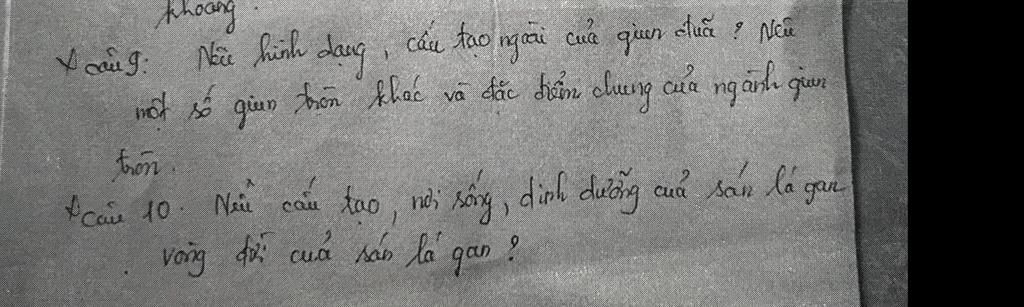 khoang.
* câu 9: Nêu hình dạng, cấu tạo ngoài của giun đũa? Nêu
một số giun tròn khác và đặc điểm chung của ngành giun
tròn.
* câu 10. Nêu cấu tạo, nơi sống, dinh dưỡng của sán lá gan
. vòng đời của sán lá gan?